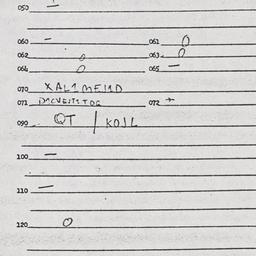 050 —
060 — 061 0
062 0 063 0
064 0 065 —
070
071 072 +
090 QT / KOJL
100 —
110 —
120 0